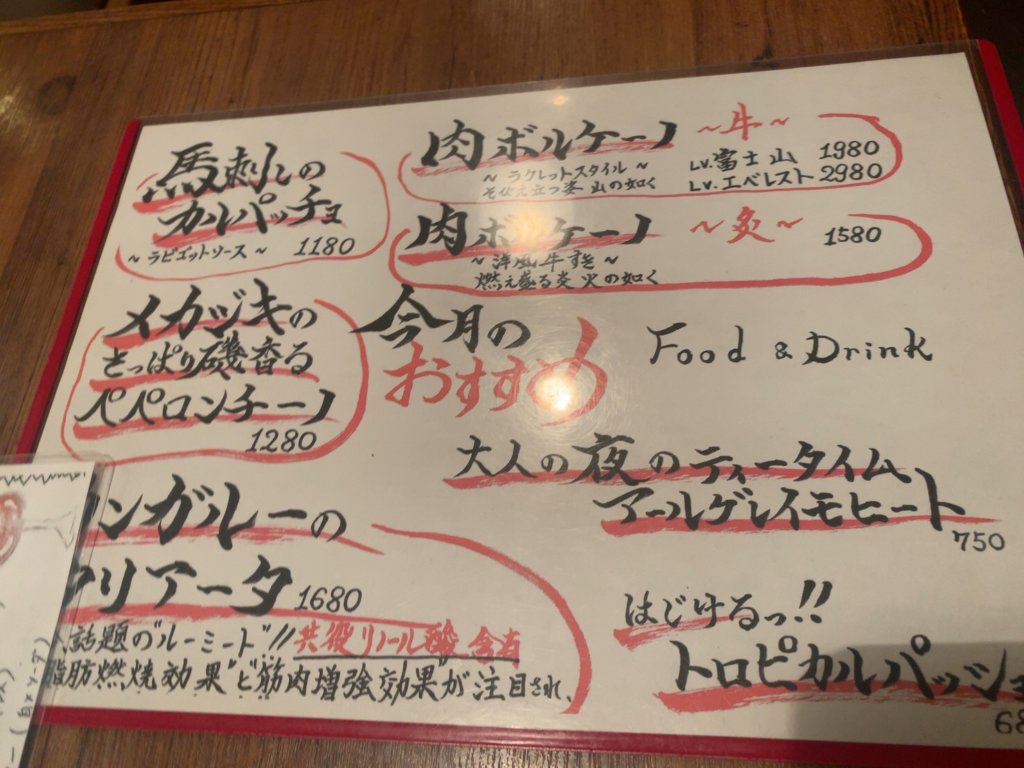 馬刺しの
カルパッチョ
~ラビゴットソース~ 1180
メカヅキの
さっぱり磯香る
ペペロンチーノ
1280
ンガルーの
タリアータ 1680
話題の"ルーミート"!! 共役リノール酸含有
脂肪燃焼効果"と"筋肉増強効果"が注目され、
肉ボルケーノ ~牛~
~ラクレットスタイル~
そびえ立つ姿 山の如く
Lv.富士山 1980
Lv.エベレスト 2980
肉ボルケーノ ~炙~ 1580
~洋風牛すき~
燃え盛る炎 火の如く
今月の
おすすめ
Food & Drink
大人の夜のティータイム
アールグレイモヒート
750
はじけるっ!!
トロピカルパッショ
68